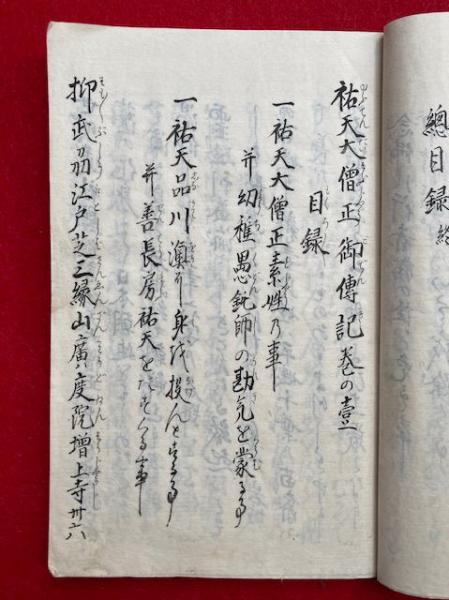 總目録終
祐天大僧正御傳記巻の壹
目録
一祐天大僧正素姓乃事
并幼稚愚鈍師の勘気を蒙る事
一祐天品川濱に身を投んとする事
并善長房祐天をたすくる事
抑武刕江戸芝三縁山廣度院増上寺卅六